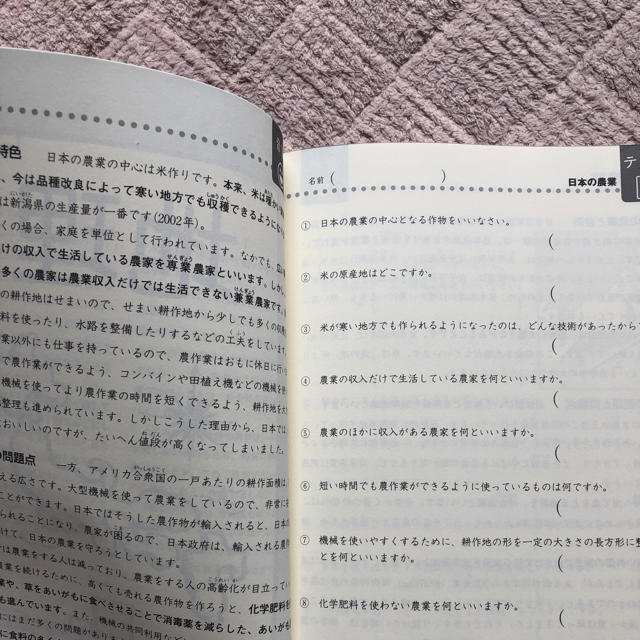 特色 日本の農業の中心は米作りです。本来、米は暖か
、今は品種改良によって寒い地方でも収穫できるようにな
は新潟県の生産量が一番です(2002年)。
くの場合、家庭を単位として行われています。なかでも、
けの収入で生活している農家を専業農家といいます。しか
多くの農家は農業収入だけでは生活できない兼業農家です。
の耕作地はせまいので、せまい耕作地から少しでも多くの収
料を使ったり、水路を整備したりするなどの工夫をしています。
業以外にも仕事を持っているので、農作業はおもに休日に行
で農作業ができるよう、コンバインや田植え機などの機械を使
機械を使ってより農作業の時間を短くできるよう、耕作地を大
整理も進められています。しかしこうした理由から、日本では
おいしいのですが、たいへん値段が高くなってしまいました。
の問題点 一方、アメリカ合衆国の一戸あたりの耕作面積は、
える広さです。大型機械を使って農業をしているので、非常に
ことができます。日本ではそうした農作物が輸入されると、日本の
られることになり、農家が困るので、日本政府は、輸入される農
て、日本の農業を守ろうとしています。
は農業をする人は減っており、農業をする人の高齢化が目立ってい
農業を続けるために、高くても売れる農作物を作ろうと、化学肥料
業や、草をあいがもに食べさせることで消毒薬を減らした、あいがも
も進んでいます。また、機械の共同利用など
にはまだ多くの問題があります
名前( )
日本の農業
テ
① 日本の農業の中心となる作物をいいなさい。
(
② 米の原産地はどこですか。
(
③ 米が寒い地方でも作られるようになったのは、どんな技術があったから
(
④ 農業の収入だけで生活している農家を何といいますか。
(
⑤ 農業のほかに収入がある農家を何といいますか。
(
⑥ 短い時間でも農作業ができるように使っているものは何ですか。
(
⑦ 機械を使いやすくするために、耕作地の形を一定の大きさの長方形に整
とを何といいますか。
(
⑧ 化学肥料を使わない農業を何といいますか。
(